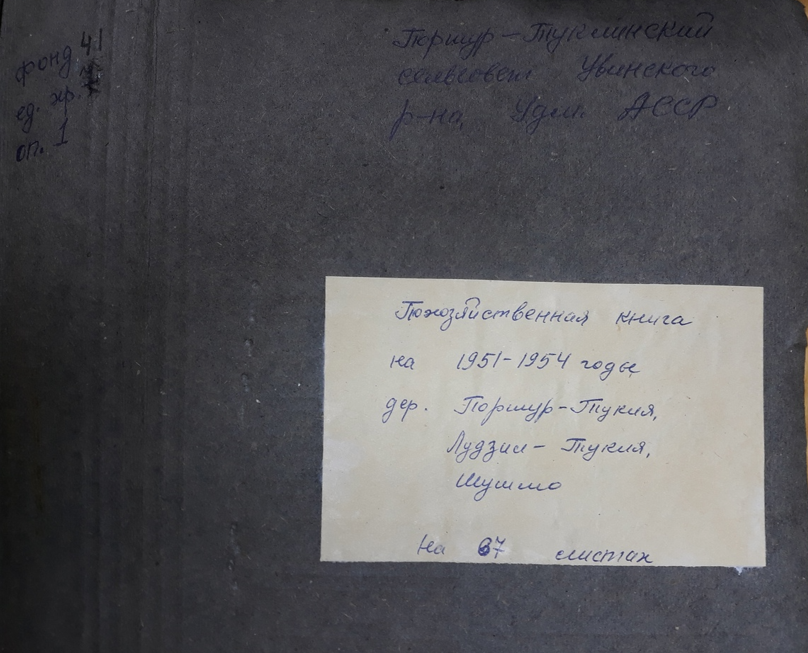 фонд 41
ед. хр.
оп. 1
Поршур-Туклинский
сельсовет Увинского
р-на, Удм. АССР
Похозяйственная книга
на 1951-1954 годы
дер. Поршур-Тукля,
Лудзил-Тукля,
Шушмо
На 67 листах